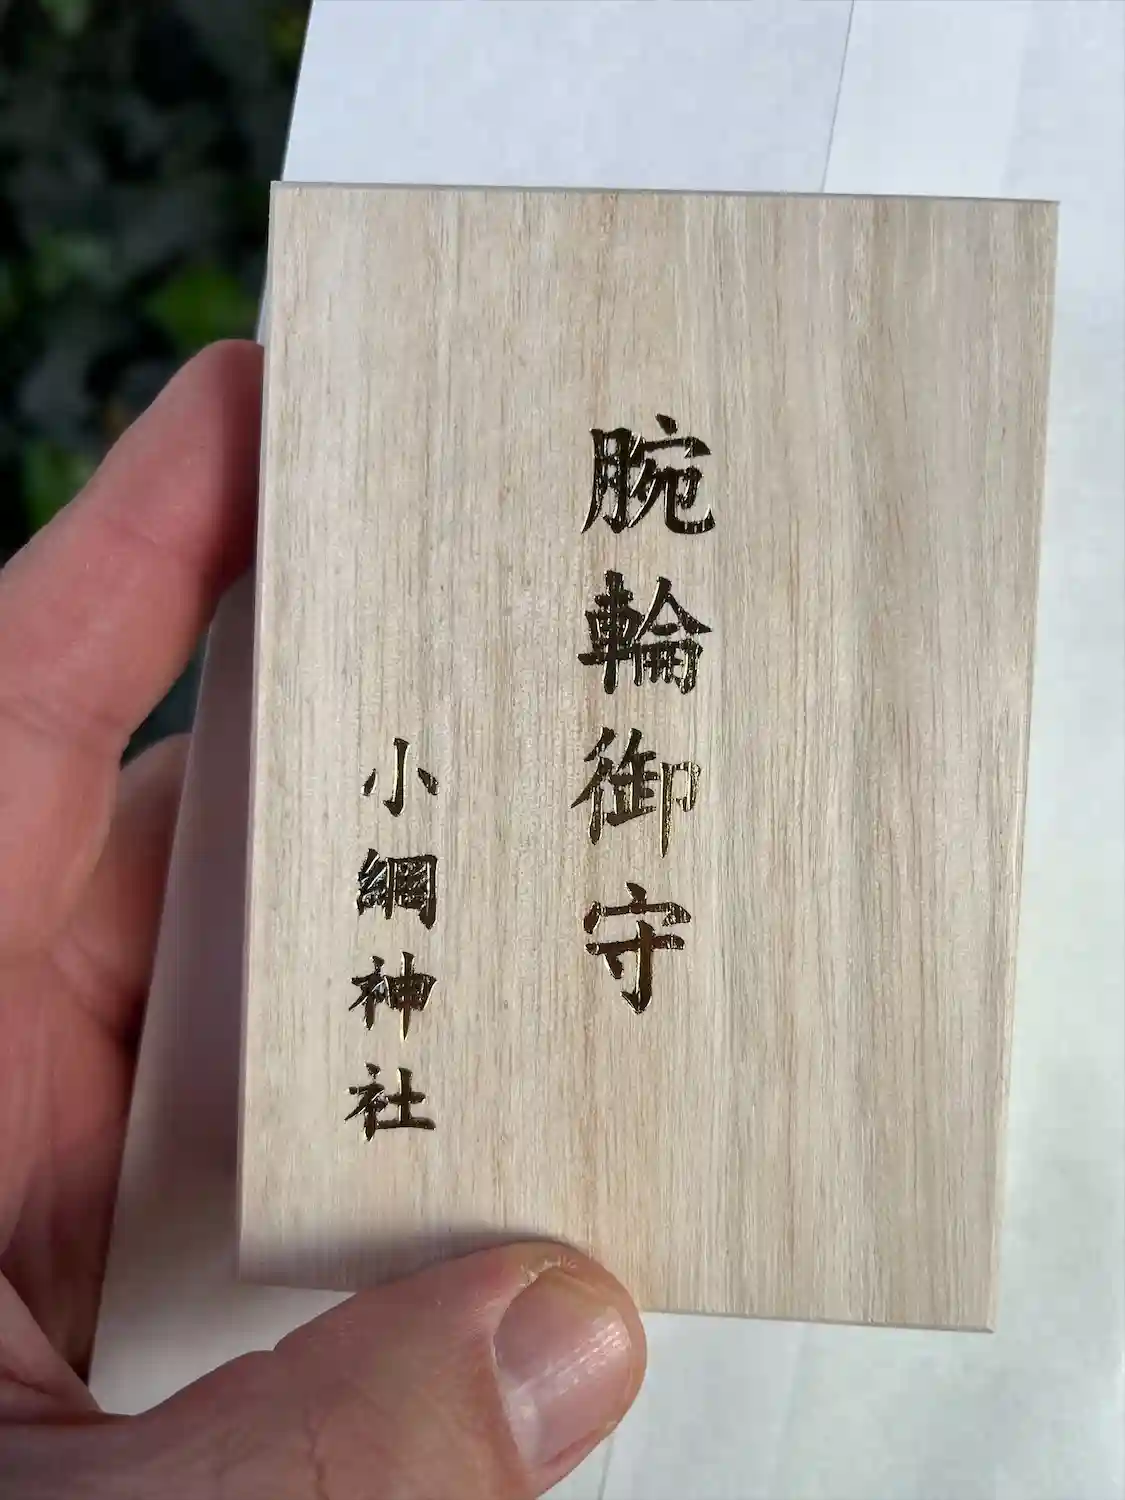 腕輪御守
小網神社